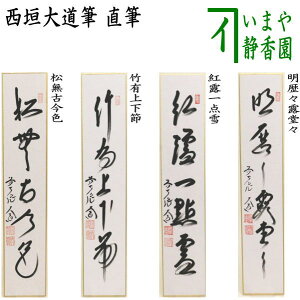 西垣大道筆 直筆
いまや
静香園
松無古今色
竹有上下節
紅露一点雪
明歴々露堂々
松無古今色
竹有上下節
紅爐一點雪
明歴々露堂々